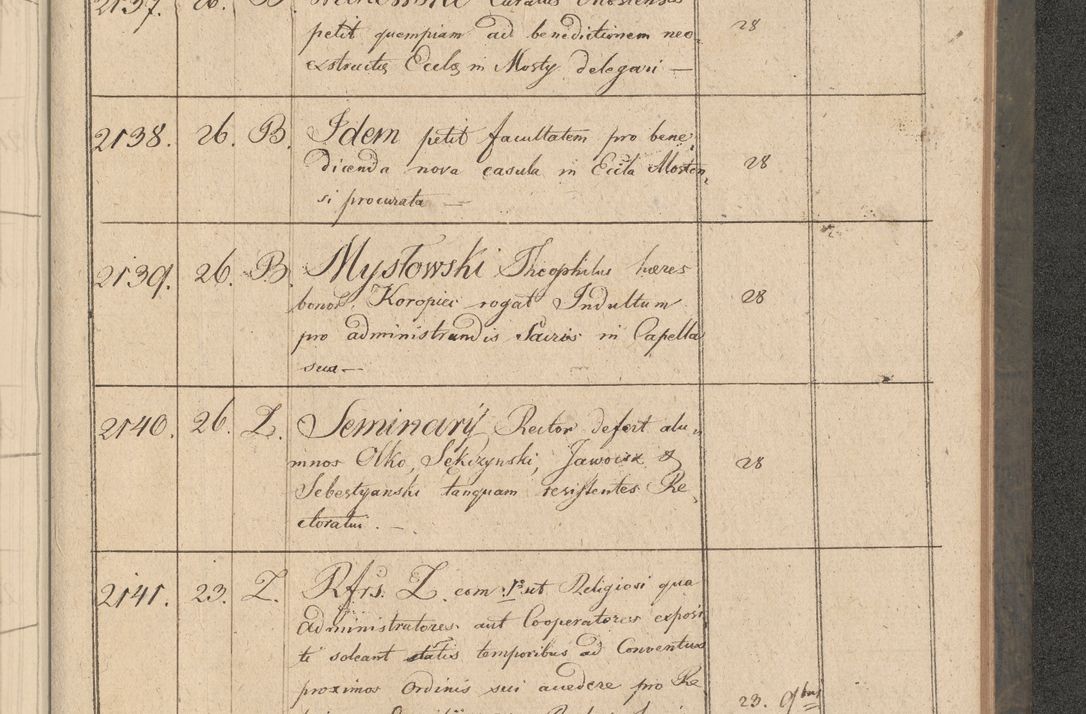 2137. 26. B. Curatus Mostensis
petit quempiam ad benedictionem neo-
exstructæ Eccleæ in Mosty delegari — 28
2138. 26. B. Idem petit facultatem pro bene,
dicenda nova casula in Eccla Mosten, 28
si procurata —
2139. 26. B. Mysłowski Theophilus hæres
bonor Koropiec rogat Indultum 28
pro administrandis Sacris in Capella
sua —
2140. 26. Z. Seminarij Rector defert alu,
mnos Olko, Sękizynski, & 28
Sebestyanski tanquam resistentes Re,
ctoratui. —
2141. 23. Z. Rfrs. Z. com Religiosi qua
administratores aut Cooperatores exposi
ti soleant statis temporibus ad Conventus
proximos Ordinis sui accedere pro Re, 23. 9bris